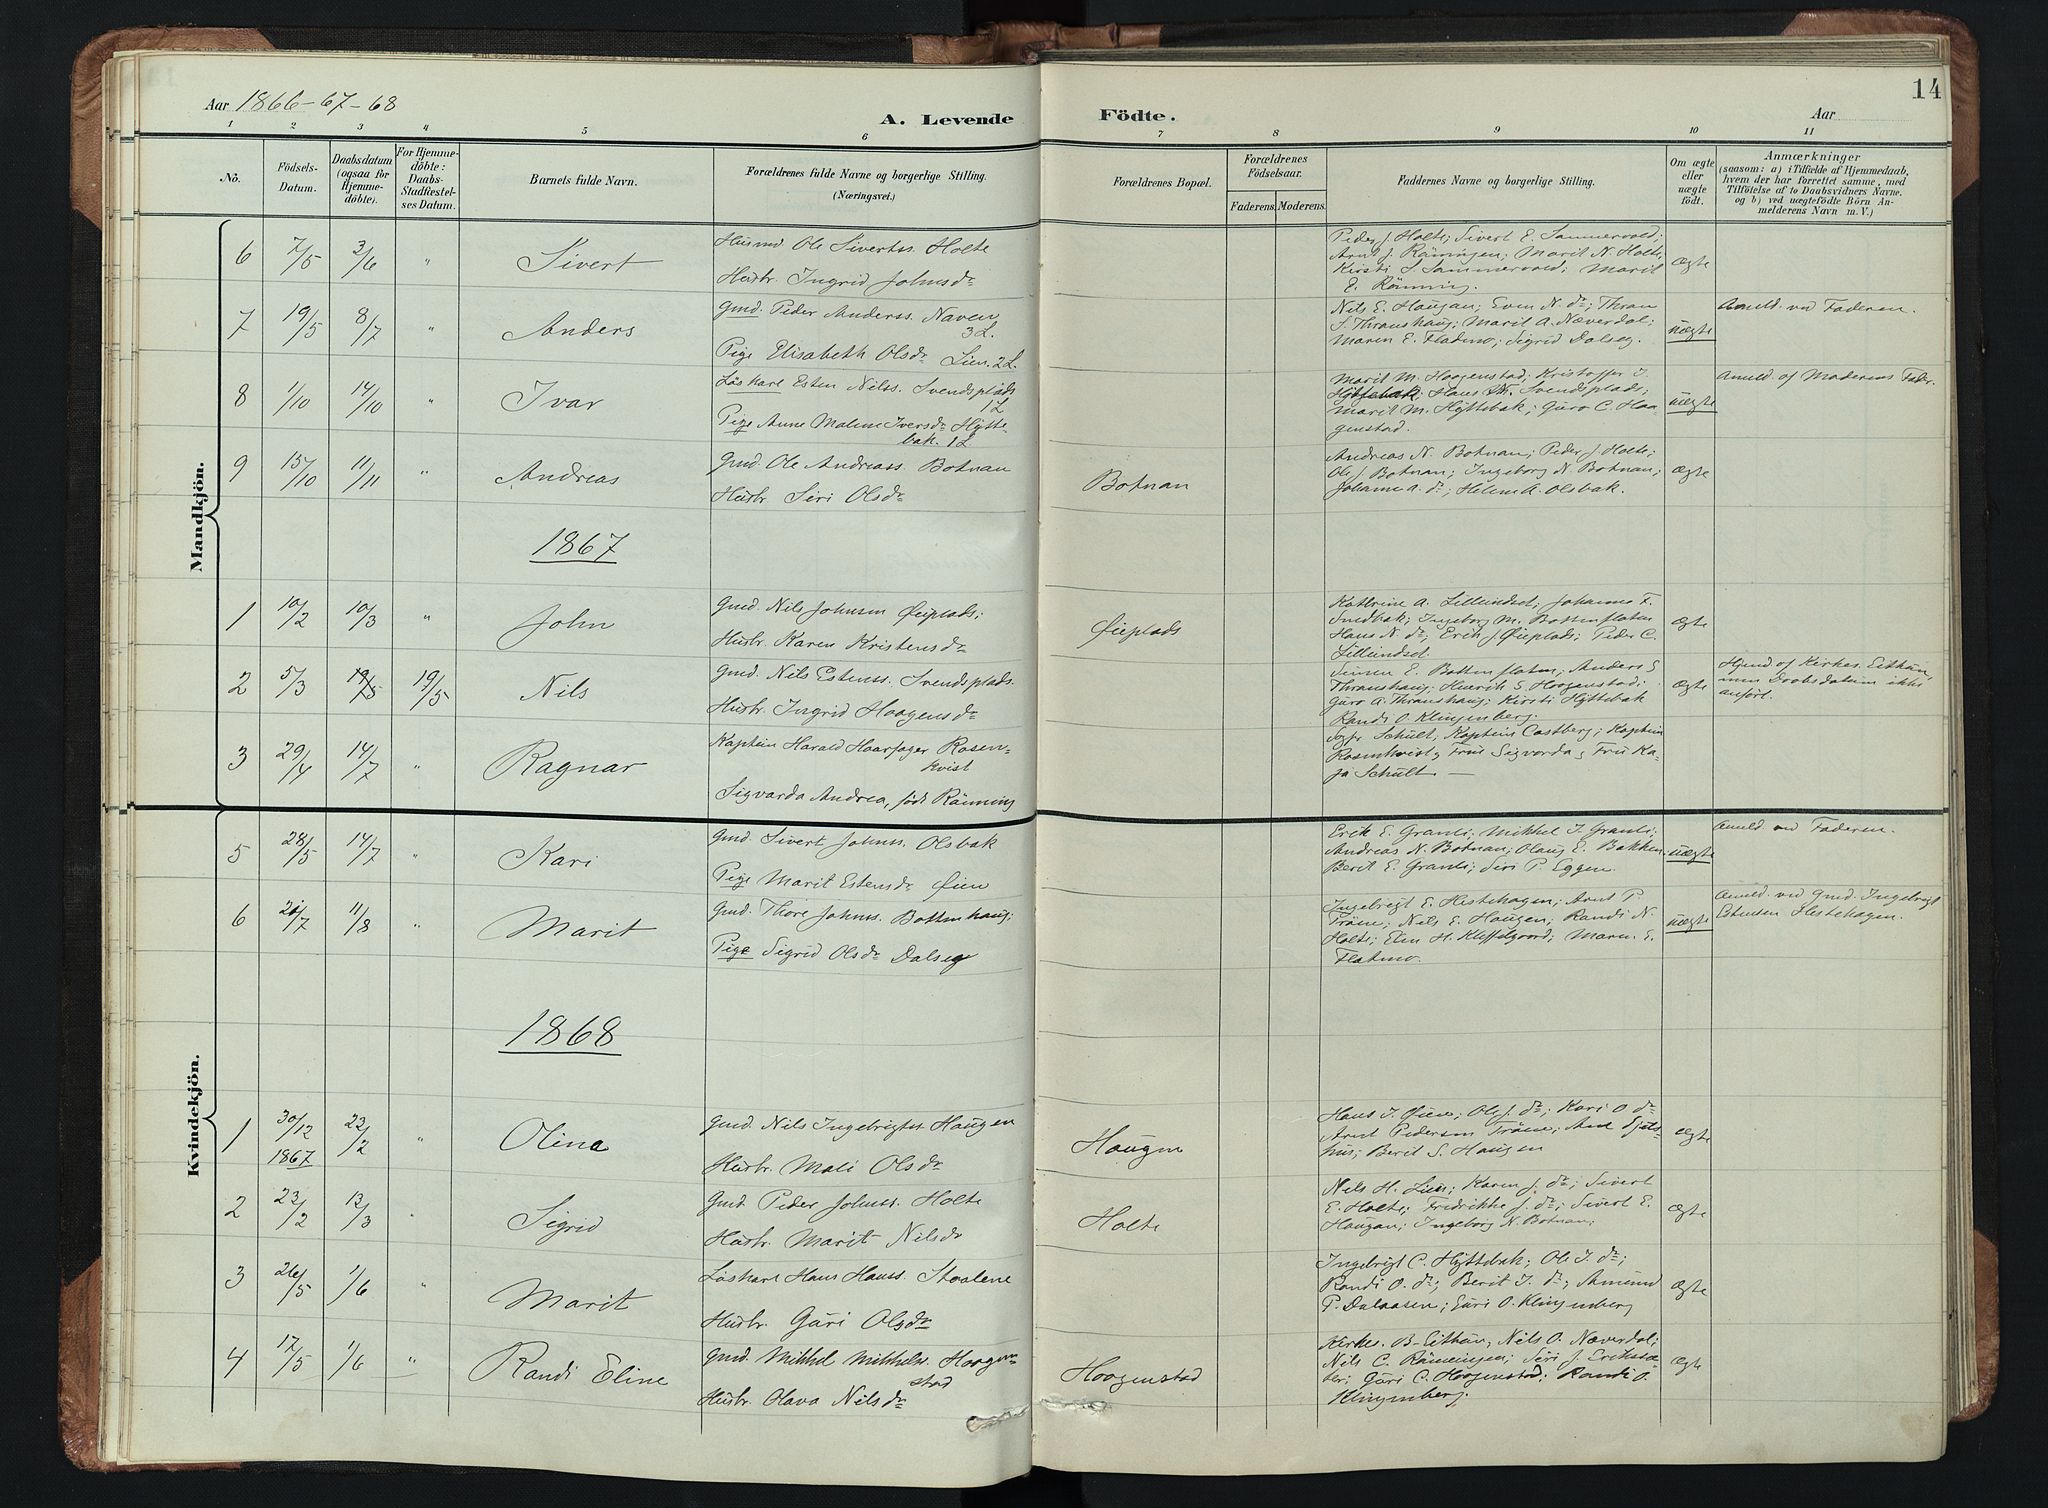 Aar 1866-67-68
A. Levende
Födte.
Aar
14
1 2 3 4 5 6 7 8 9 10 11
No.
Födsels-
Datum.
Daabsdatum
(ogsaa for
Hjemme-
döbte).
For Hjemme-
döbte:
Daabs-
Stadfæstel-
ses Datum.
Barnets fulde Navn.
Forældrenes fulde Navne og borgerlige Stilling.
(Næringsvei.)
Forældrenes Bopæl.
Forældrenes
Födselsaar.
Faderens. Moderens.
Faddernes Navne og borgerlige Stilling.
Om ægte
eller
uægte
födt.
Anmærkninger
(saasom: a) i Tilfælde af Hjemmedaab,
hvem der har forrettet samme, med
Tilföielse af to Daabsvidners Navne.
og b) ved uægtefödte Börn An-
melderens Navn m. V.)
Mandkjön.
6 7/5 3/6 " Sivert
Husmd Ole Sivertss. Holte
Hustr. Ingrid Johnsdr
Peder J. Holte; Sivert E. Sammervold;
Arnt J. Rönningen; Marit N. Holte,
Kirsti S Sammervold; Marit
E. Rönning.
ægte
7 19/5 8/7 " Anders
Gmd. Peder Anderss. Naven
3 L.
Pige Elisabeth Olsdr Lien. 2 L.
Nils E. Haugan; Even N. do; Thran
S. Thranshaug; Marit A. Næverdal;
Maren E. Fladmo; Sigrid Dalseg.
uægte
Anmeld. ved Faderen.
8 1/10 14/10 " Ivar
Löskarl Esten Nilss. Svendsplads
1 L
Pige Anne Malene Iversdr Hytte-
bak. 1 L
Marit M. Haagenstad; Kristoffer I.
Hyttebak; Hans N. Svendsplads;
Marit M. Hyttebak; Guro C. Haa
genstad.
uægte
Anmeld. af Moderens Fader.
9 15/10 11/11 " Andreas
Gmd. Ole Andreass. Botnan
Hustr. Siri Olsdr
Botnan
Andreas N. Botnan; Peder J. Holte;
Ole J. Botnan; Ingeborg N. Botnan;
Johanne A. do; Helene A. Olsbak.
ægte
1867
1 10/2 10/3 " John
Gmd. Nils Johnsen Øieplads;
Hustr. Karen Kristensdr
Øieplads
Kathrine A. Lilleindset; Johannes F.
Sundbak; Ingeborg M. Bottenflaten
Hans N. do; Erik J Øieplads; Peder C.
Lilleindset
ægte
2 5/3 19/5 19/5 Nils
Gmd. Nils Estenss. Svendsplads.
Hustr. Ingrid Haagensdr
E. Bottenflaten; Anders S
Thranshaug; Henrik S. Haagenstad;
Guro A. Thranshaug; Kirsti Hyttebak
Randi O. Klingenberg.
ægte
Hjmd af Kirkes. Eithun,
men Daabsdatum ikke
anført.
3 29/4 14/7 " Ragnar
Kaptein Harald Haarfager Rosen-
kvist
Sigvarda Andrea, født Rönning
Schult, Kaptein Castberg; Kaptein
Rosenkvist, Frue Sigvarda, Frue Ka-
ja Schült. —
Kvindekjön.
5 28/5 14/7 " Kari
Gmd. Sivert Johnss. Olsbak
Pige Marit Estensdr Øien
Erik E. Granli; Mikkel I. Granli;
Andreas N. Botnan; Olaug E. Bakken;
Berit E. Granli; Siri P. Eggen.
uægte
Anmeld ved Faderen.
6 21/7 11/8 " Marit
Gmd. Thore Johnss. Bottenhaug;
Pige Sigrid Olsdr Dalseg
Ingebrigt E. Hestehagen; Arnt P.
Tröne; Nils E. Haugen; Randi N.
Holte; Elen H. Kleffelgaard; Maren E.
Flatmo.
uægte
Anmeld. ved Gmd. Ingebrigt
Estensen Hestehagen.
1868
1 30/12 1867 22/2 " Olina
Gmd. Nils Ingebrigtss. Haugen
Hustr. Mali Olsdr
Haugen
Hans J. Øien; Ole J. do; Kari O. do
Arnt Pedersen Tröne;
hus; Berit S. Haugen
ægte
2 23/2 13/3 " Sigrid
Gmd. Peder Johnss. Holte
Hustr. Marit Nilsdr
Holte
Nils H. Lien; Karen J. do; Sivert
E. Holte; Fredrikke J. do; Sivert E.
Haugan; Ingeborg N. Botnan;
ægte
3 26/5 1/6 " Marit
Löskarl Hans Hanss. Staalene
Hustr. Guri Olsdr
Ingebrigt C. Hyttebak; Ole I. do;
Randi O. do; Berit I. do; Amund
P. Dalaasen; Guri O. Klingenberg
ægte
4 17/5 1/6 " Randi Eline
Gmd. Mikkel Mikkelss. Haagen-
stad
Hustr. Olava Nilsdr
Haagenstad
Kirkes. B. Eithun, Nils O. Næverdal;
Nils C. Rönningen; Siri J. Erikssæ-
teri; Guri C. Haagenstad; Randi O.
Klingenberg.
ægte